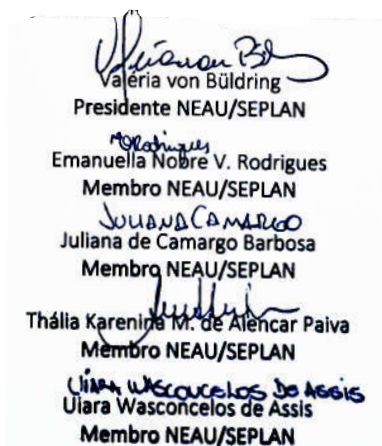 Valéria von Büldring
Presidente NEAU/SEPLAN
Rodrigues
Emanuella Nobre V. Rodrigues
Membro NEAU/SEPLAN
JULIANA CAMARGO
Juliana de Camargo Barbosa
Membro NEAU/SEPLAN
Thália Karenina M. de Alencar Paiva
Membro NEAU/SEPLAN
UIARA WASCONCELOS DE ASSIS
Uiara Wasconcelos de Assis
Membro NEAU/SEPLAN